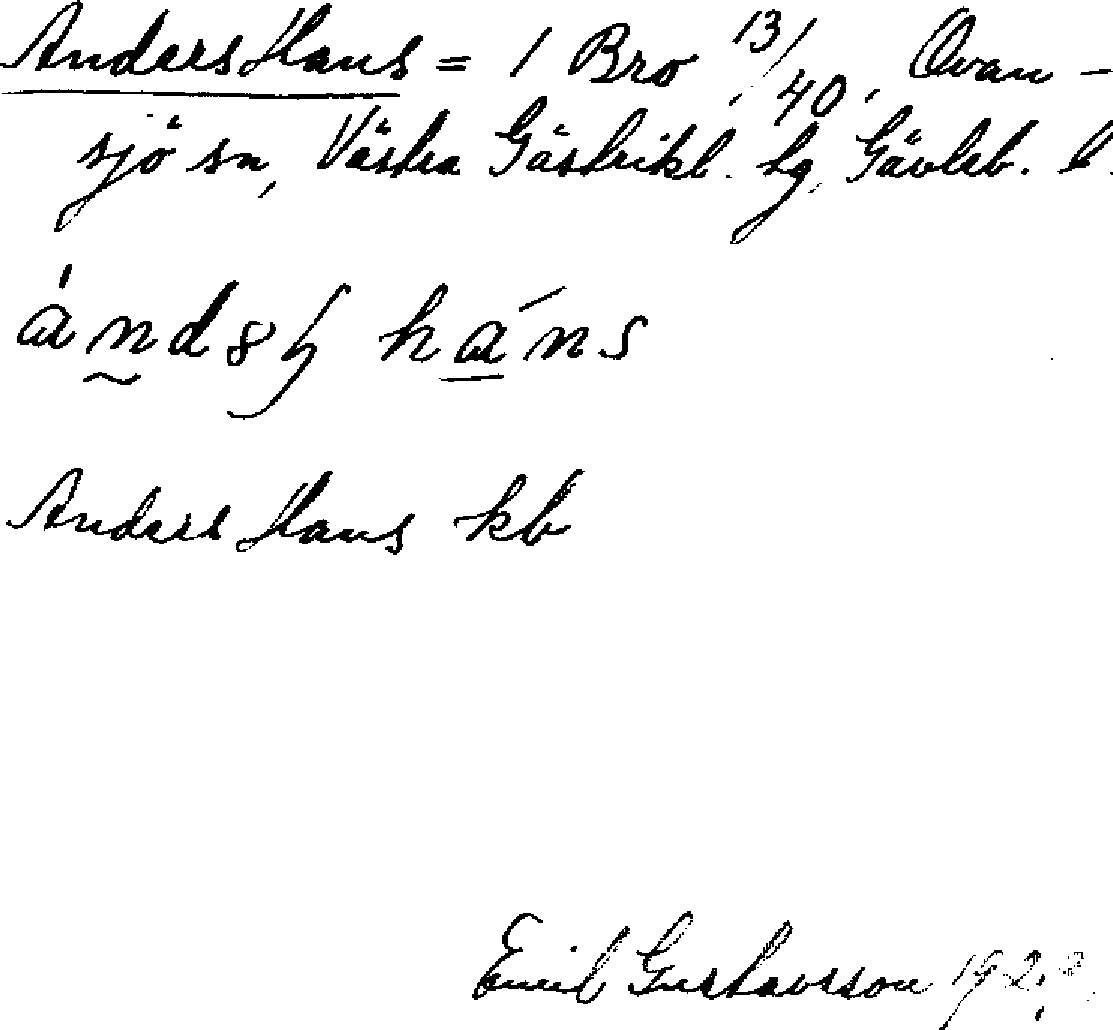 Anders Hans = 1 Bro 13/40, Ovan-
sjö sn, Västra Gästrikl. hg, Gävleb. l.
Anders Hans kb
Emil Gustavsson